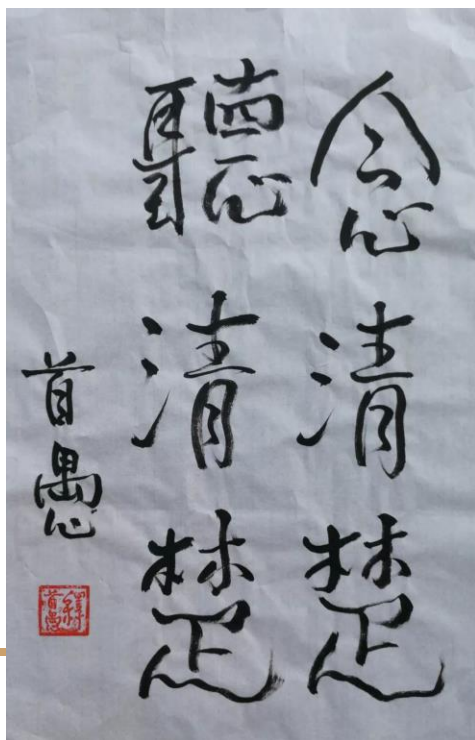 念清楚
聽清楚
首愚